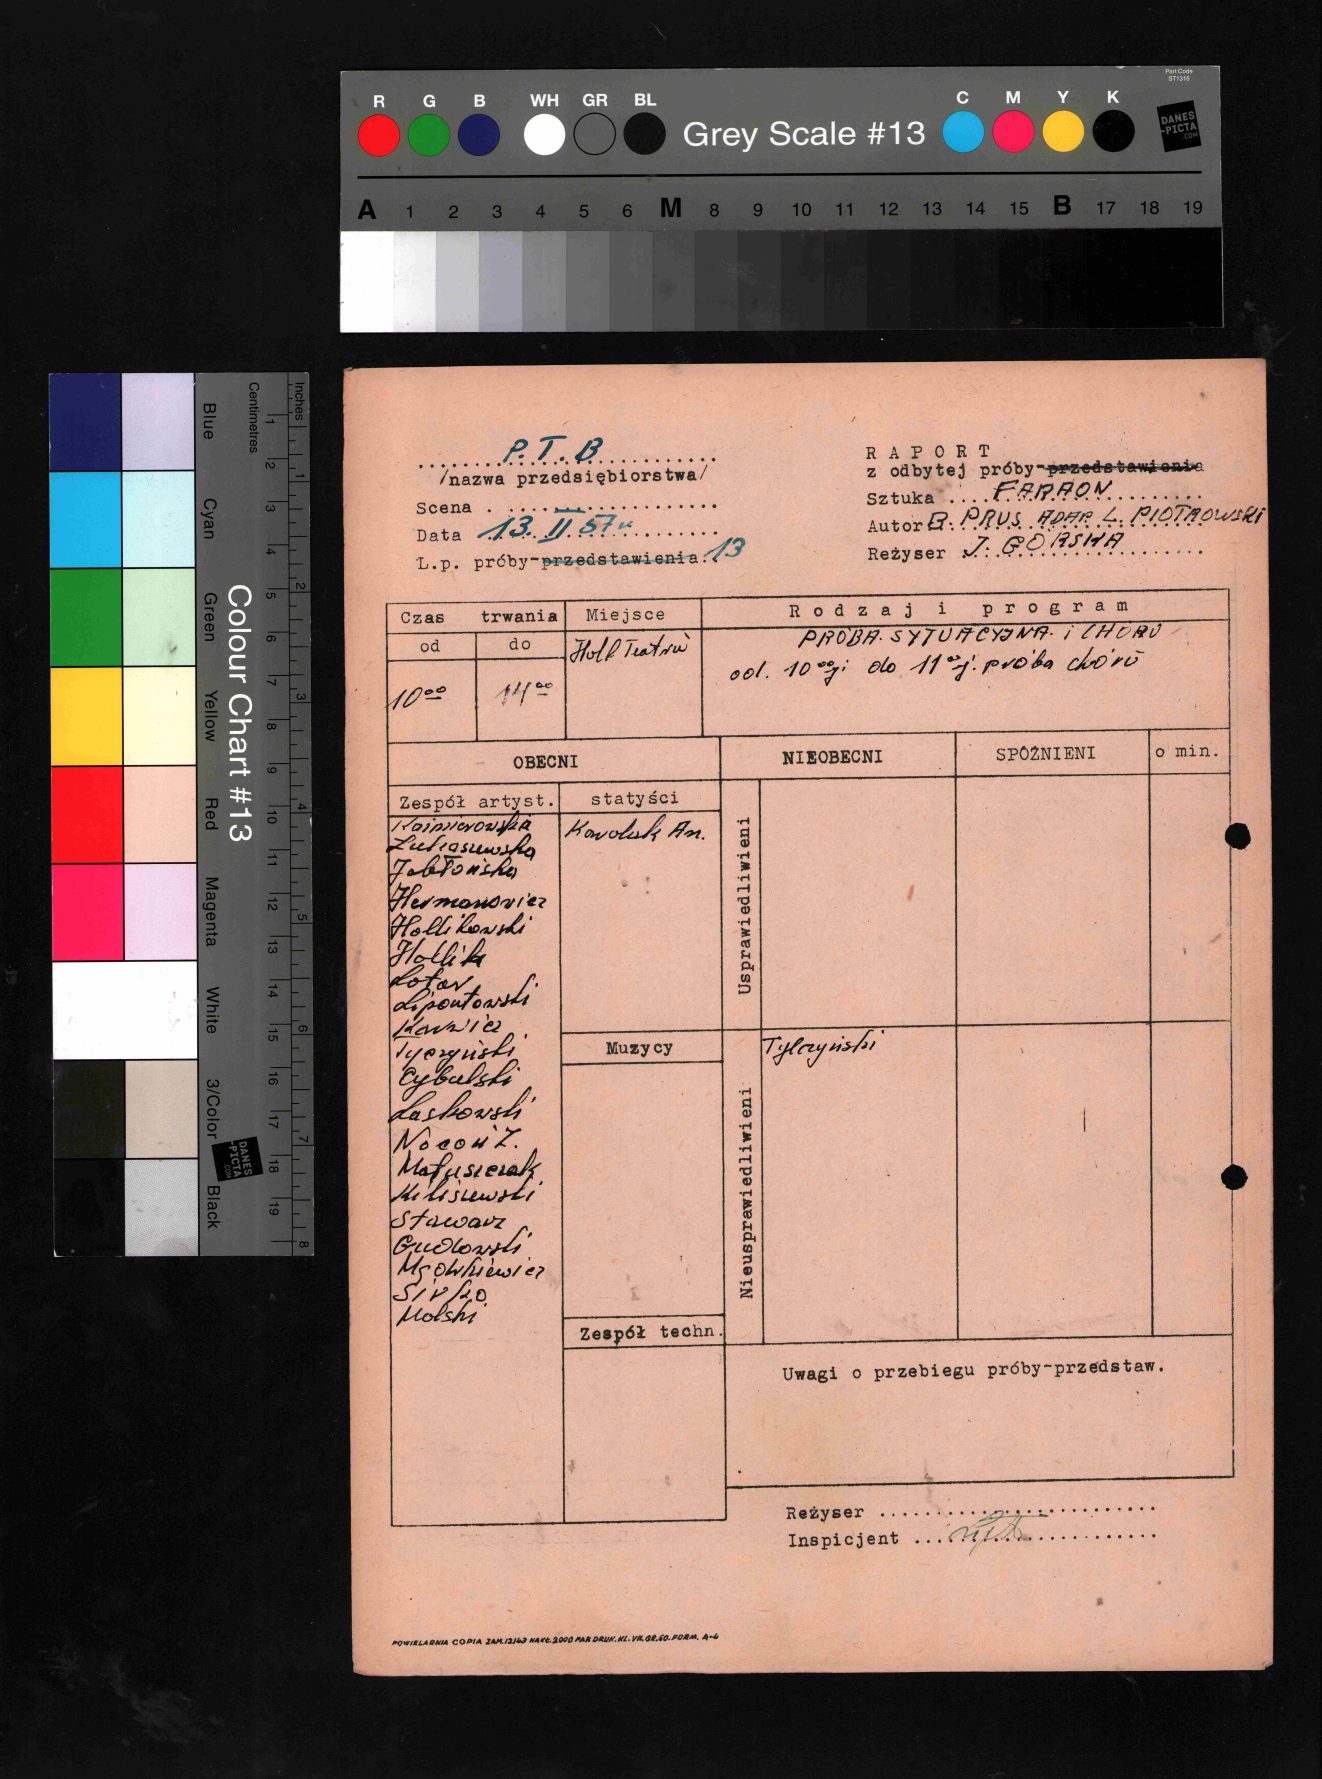 Part Code
ST1316
R G B WH GR BL
Grey Scale #13
C M Y K
DANES
-PICTA
.COM
A 1 2 3 4 5 6 M 8 9 10 11 12 13 14 15 B 17 18 19
Inches
Centimetres
1 2 3 4 5 6 7 8 9 10 11 12 13 14 15 16 17 18 19
1 2 3 4 5 6 7 8
Colour Chart #13
Blue Cyan Green Yellow Red Magenta White 3/Color Black
DANES
-PICTA
.COM
P.T.B
/nazwa przedsiębiorstwa/
Scena
Data 13. II 57r
L.p. próby-przedstawienia. 13
RAPORT
z odbytej próby-przedstawienia
Sztuka FARAON
Autor B. PRUS ADAP L. PIOTROWSKI
Reżyser J. GÓRSKA
Czas trwania Miejsce Rodzaj i program
od do Holl Teatru PRÓBA SYTUACYJNA i CHÓRU
od. 10 00 g: do 11 00 g. próba chóru
10 00 14 00
OBECNI NIEOBECNI SPÓŹNIENI o min.
Zespół artyst. statyści
Kaźmierowska Karoluk An.
Łukaszewska
Jabłońska
Hermanowicz
Hollikowski
Hollik
Lotar
Lipontowski
Karwicz
Tyczyński
Cybulski
Laskowski
Nocoń Z.
Matusiczak
Kiliszewski
Stawarz
Gudowski
Molski
Usprawiedliwieni
Muzycy
Tylczyński
Nieusprawiedliwieni
Zespół techn.
Uwagi o przebiegu próby-przedstaw.
Reżyser
Inspicjent
POWIELARNIA COPIA ZAM. 12143 NAKŁ. 2000 PAR DRUK. KL. VII. GR. 60. FORM. A-4